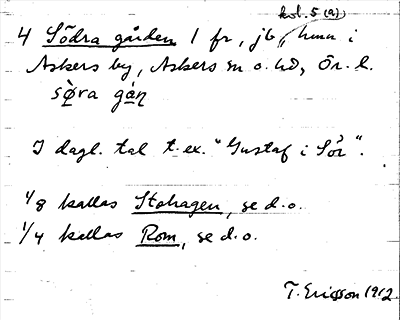 kol. 5 (a)
4 Södra gården 1 fr, jb, hmn i
Askers by, Askers sn o. hd, Ör. l.
sø̀ra gán
I dagl. tal t.ex. "Gustaf i Sör".
1/8 kallas Stohagen, se d.o.
1/4 kallas Rom, se d.o.
T. Ericsson 1912